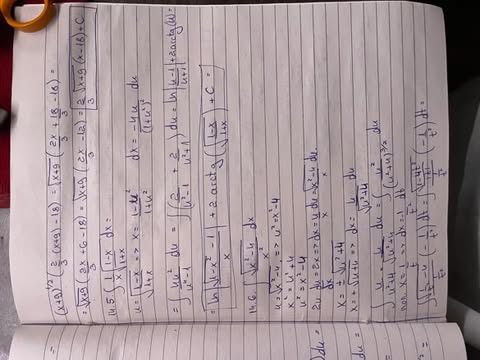 (x+9)^{1/2} (2/3 (x+9) - 18) = √(x+9) (2x/3 + 18/3 - 18) =
= √(x+9) (2x/3 + 6 - 18) = √(x+9) (2x/3 - 12) = 2/3 √(x+9) (x-18) + C
14.5 ∫ 1/x √((1-x)/(1+x)) dx =
u = √((1-x)/(1+x)) => x = (1-u²)/(1+u²) dx = -4u/(1+u²)² du
= ∫ 4u²/(u⁴-1) du = ∫ (2/(u²-1) + 2/(u²+1)) du = ln|(u-1)/(u+1)| + 2arctg(u) =
= ln|(√(1-x²) - 1)/x| + 2 arctg(√((1-x)/(1+x))) + C =
14.6. ∫ √(x²-4)/x² dx
u = √(x²-4) => u² = x²-4
x² = u²+4
u² = x²-4
2u du/dx = 2x => dx = u/x du = √(x²-4)/x du
x = ± √(u²+4)
x = + √(u+4) => dx = u/√(u²+4) du
∫ u/(u²+4) · u/√(u²+4) du = ∫ u²/(u²+4)^{3/2} du
x = 1/t => dx = -1/t² dt